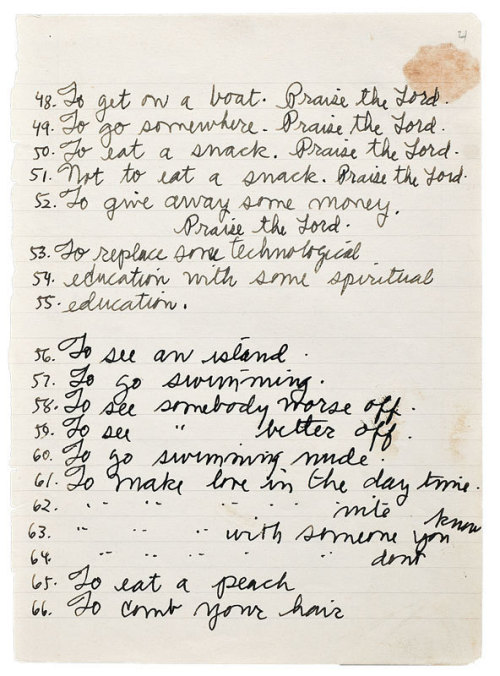 4
48. To get on a boat. Praise the Lord.
49. To go somewhere. Praise the Lord.
50. To eat a snack. Praise the Lord.
51. Not to eat a snack. Praise the Lord.
52. To give away some money.
Praise the Lord.
53. To replace some technological
54. education with some spiritual
55. education.
56. To see an island.
57. To go swimming.
58. To see somebody worse off.
59. To see " better off.
60. To go swimming nude.
61. To make love in the day time.
62. " " " " " nite
63. " " " with someone you know
64. " " " " " " dont
65. To eat a peach
66. To comb your hair